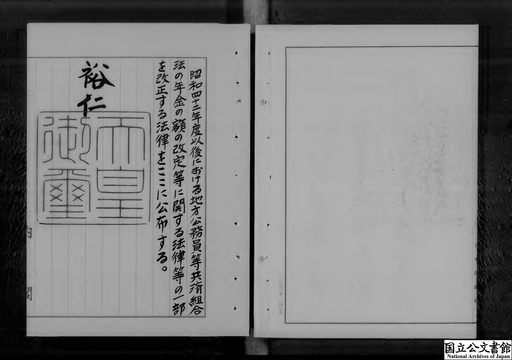 昭和四十二年度以後における地方公務員等共済組合
法の年金の額の改定等に関する法律等の一部
を改正する法律をここに公布する。
裕仁
天皇
御璽
内閣
国立公文書館
National Archives of Japan